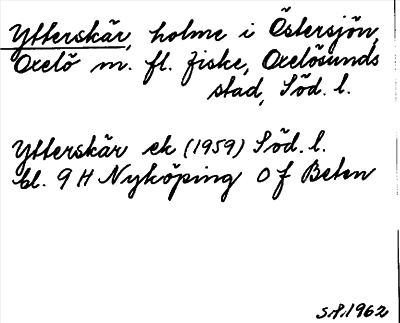 Ytterskär, holme i Östersjön,
Oxelö m. fl. fiske, Oxelösunds
stad, Söd. l.
Ytterskär ek (1959) Söd. l.
bl. 9 H Nyköping 0 f Beten
S.P. 1962